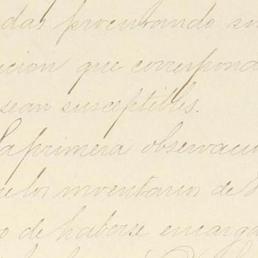 das procurando su
cion que corresponda
sean susceptibles.
La primera observacio
los inventarios de
o de haberse encarga